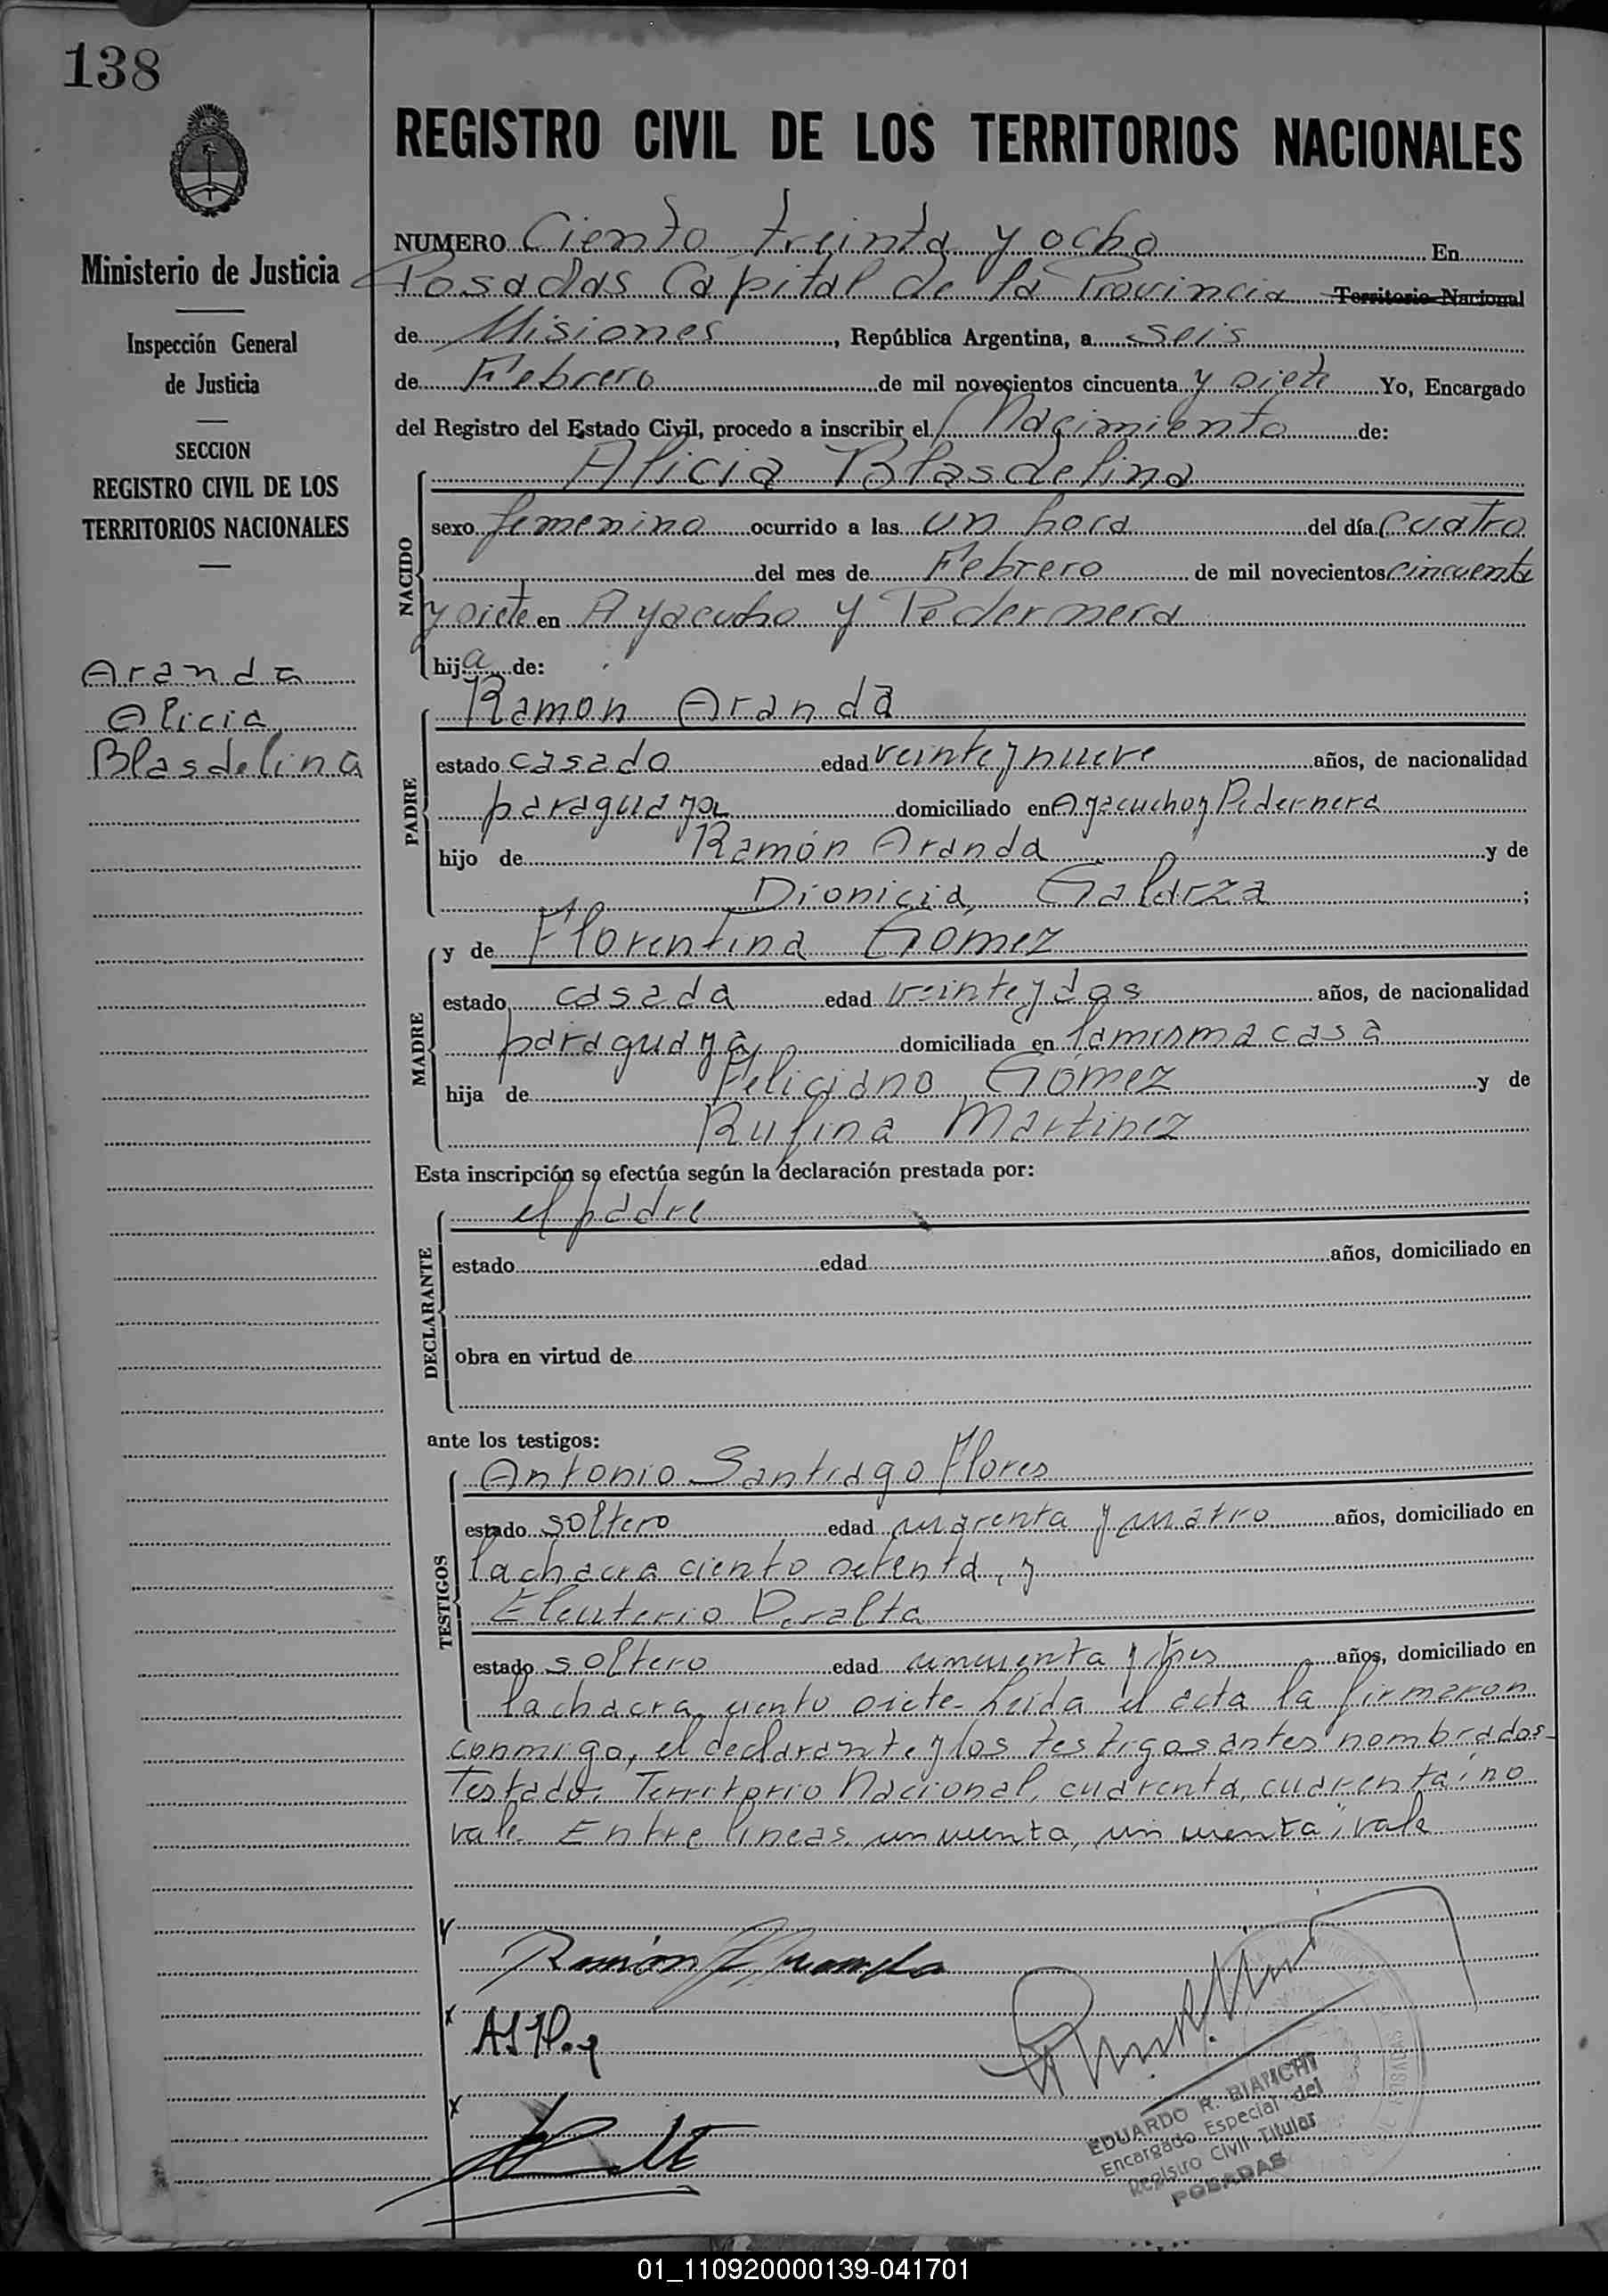 138
REGISTRO CIVIL DE LOS TERRITORIOS NACIONALES
Ministerio de Justicia
Inspección General
de Justicia
SECCION
REGISTRO CIVIL DE LOS
TERRITORIOS NACIONALES
Aranda
Alicia
Blasdelina
NUMERO Ciento treinta y ocho En
Posadas Capital de la Provincia Territorio Nacional
de Misiones, República Argentina, a seis
de Febrero de mil novecientos cincuenta y siete Yo, Encargado
del Registro del Estado Civil, procedo a inscribir el Nacimiento de:
NACIDO
Alicia Blasdelina
sexo femenino ocurrido a las un hora del día cuatro
del mes de Febrero de mil novecientos cincuenta
y siete en Ayacucho y Pedernera
hija de:
PADRE
Ramón Aranda
estado casado edad veinte y nueve años, de nacionalidad
paraguaya domiciliado en Ayacucho y Pedernera
hijo de Ramón Aranda y de
Dionicia Galarza;
MADRE
y de Florentina Gomez
estado casada edad veinte y dos años, de nacionalidad
paraguaya domiciliada en la misma casa
hija de Feliciano Gómez y de
Rufina Martinez
Esta inscripción se efectúa según la declaración prestada por:
DECLARANTE
el padre
estado edad años, domiciliado en
obra en virtud de
ante los testigos:
TESTIGOS
Antonio Santiago Flores
estado soltero edad cuarenta y cuatro años, domiciliado en
la chacra ciento setenta, y
Eleuterio Peralta
estado soltero edad cincuenta y tres años, domiciliado en
la chacra ciento siete- Leida el acta la firmaron
conmigo, el declarante y los testigos antes nombrados-
Testado: Territorio Nacional, cuarenta, cuarenta; no
vale. Entre lineas, cincuenta, cincuenta; vale
Ramón Aranda
EDUARDO R. BIANCHI
Encargado Especial del
Registro Civil Titular
POSADAS
01_110920000139-041701